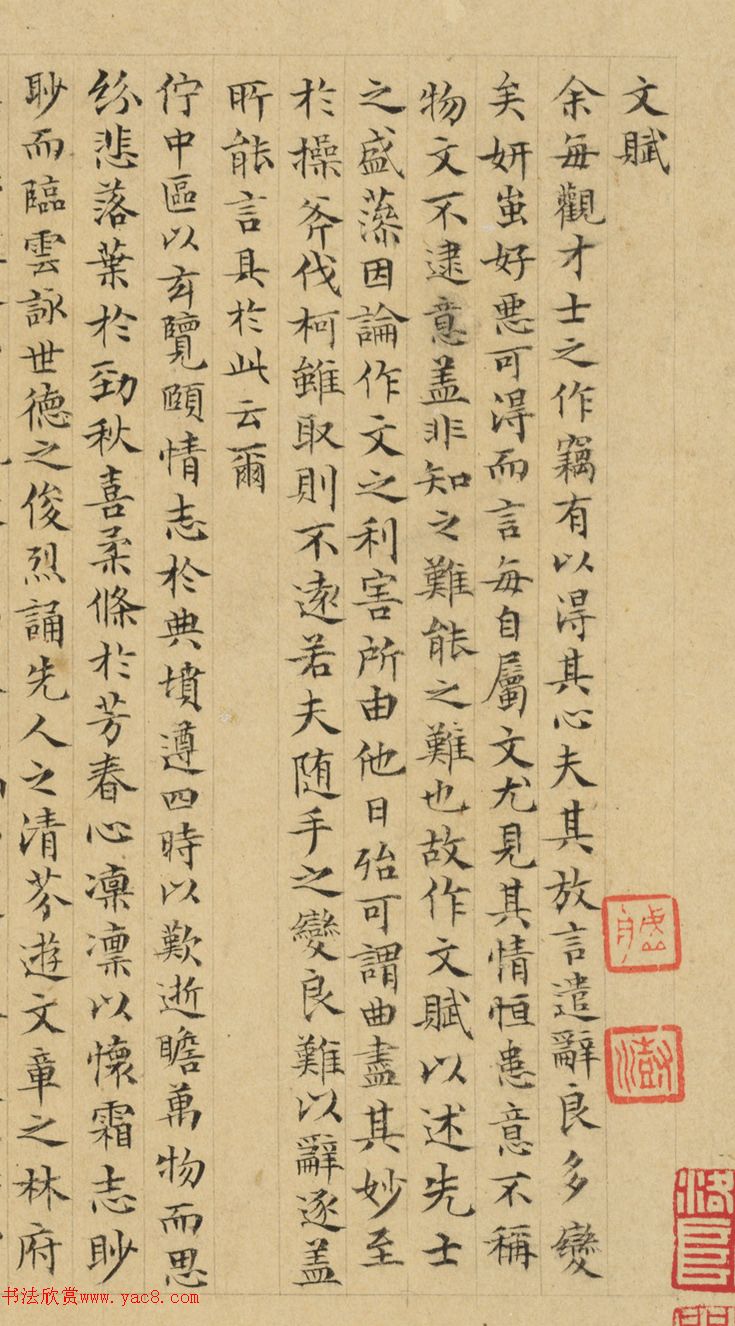 文賦
余每觀才士之作竊有以得其心夫其放言遣辭良多變
矣妍蚩好惡可得而言每自屬文尤見其情恒患意不稱
物文不逮意蓋非知之難能之難也故作文賦以述先士
之盛藻因論作文之利害所由他日殆可謂曲盡其妙至
於操斧伐柯雖取則不遠若夫随手之變良難以辭逐蓋
所能言具於此云爾
佇中區以玄覽頤情志於典墳遵四時以歎逝瞻萬物而思
紛悲落葉於勁秋喜柔條於芳春心凛凛以懷霜志眇
眇而臨雲詠世德之俊烈誦先人之清芬遊文章之林府
书法欣赏www.yac8.com